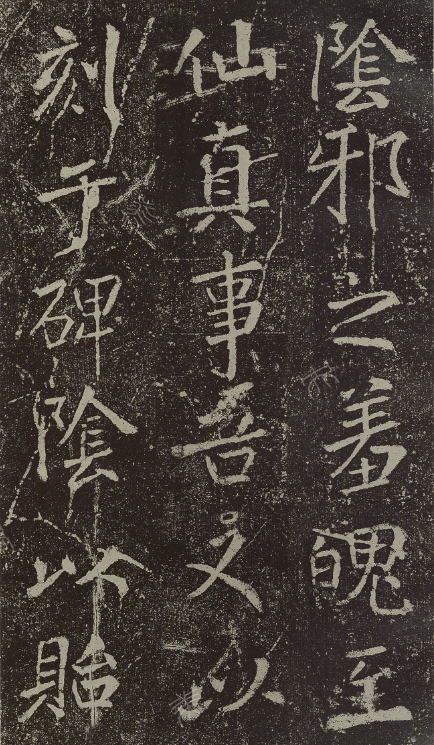 陰邪之羞魄至
仙真事吾又以
刻于碑陰以貽